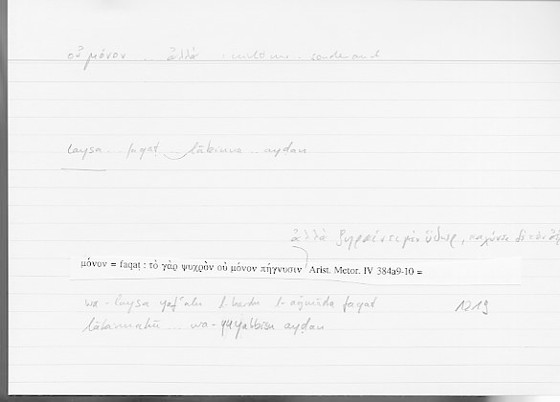 οὐ μόνον .. ἀλλὰ
laysa .. faqaṭ .. lākinna .. ayḍan
ἀλλὰ ξηραίνει μὲν ὕδωρ, παχύνει
μόνον = faqaṭ : τὸ γὰρ ψυχρὸν οὐ μόνον πήγνυσιν Arist. Meteor. IV 384a9-10 =
wa-laysa yafʿalu l-bardu l-ǧumūda faqaṭ 1219
lākinnahū ... wa- ayḍan